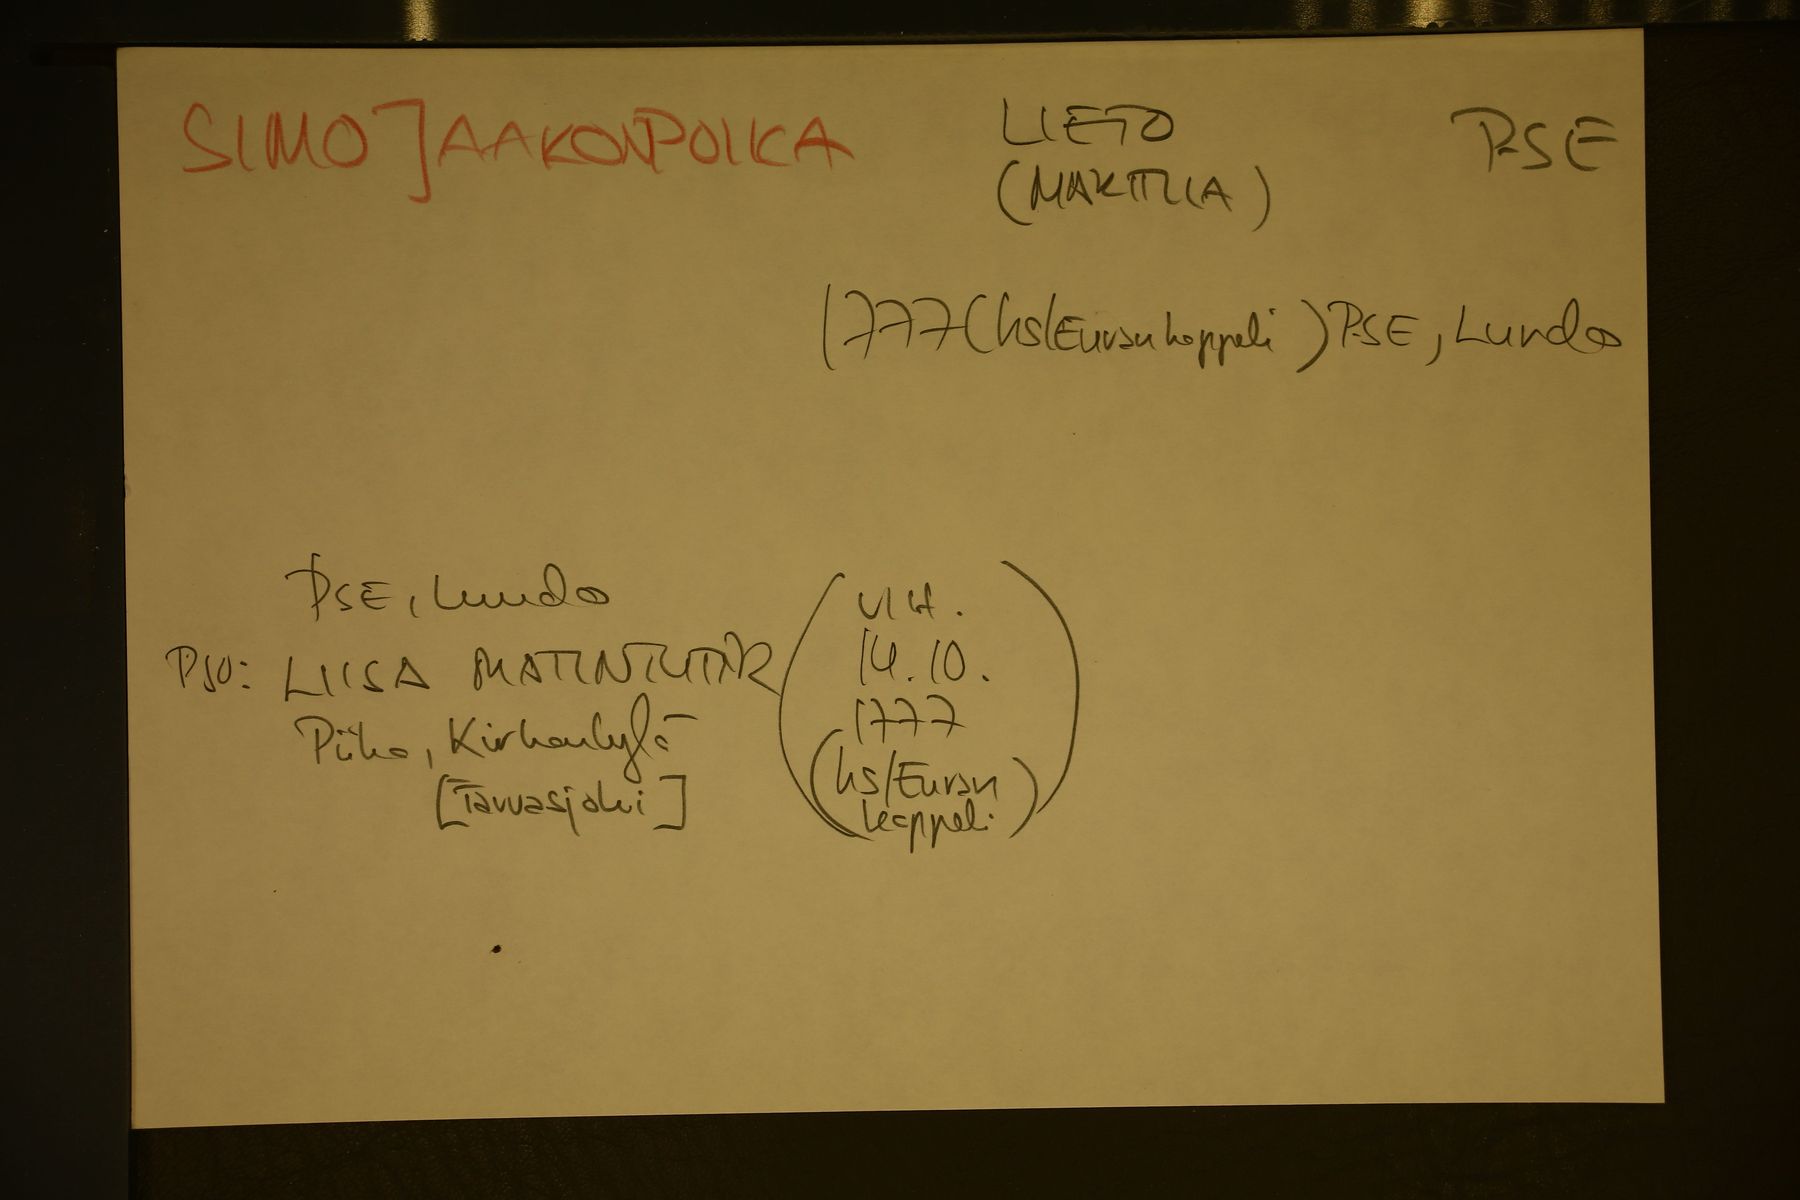 SIMO JAAKONPOIKA LIETO PSE
(MARTTILA)
1777 (hs/Euran kappeli) PSE, Lundo
PSE, Lundo
PSO: LIISA MATINTYTÄR
Piika, Kirkonkylä
[Tarvasjoki]
(VIH.
14.10.
1777
(hs/Euran
kappeli))